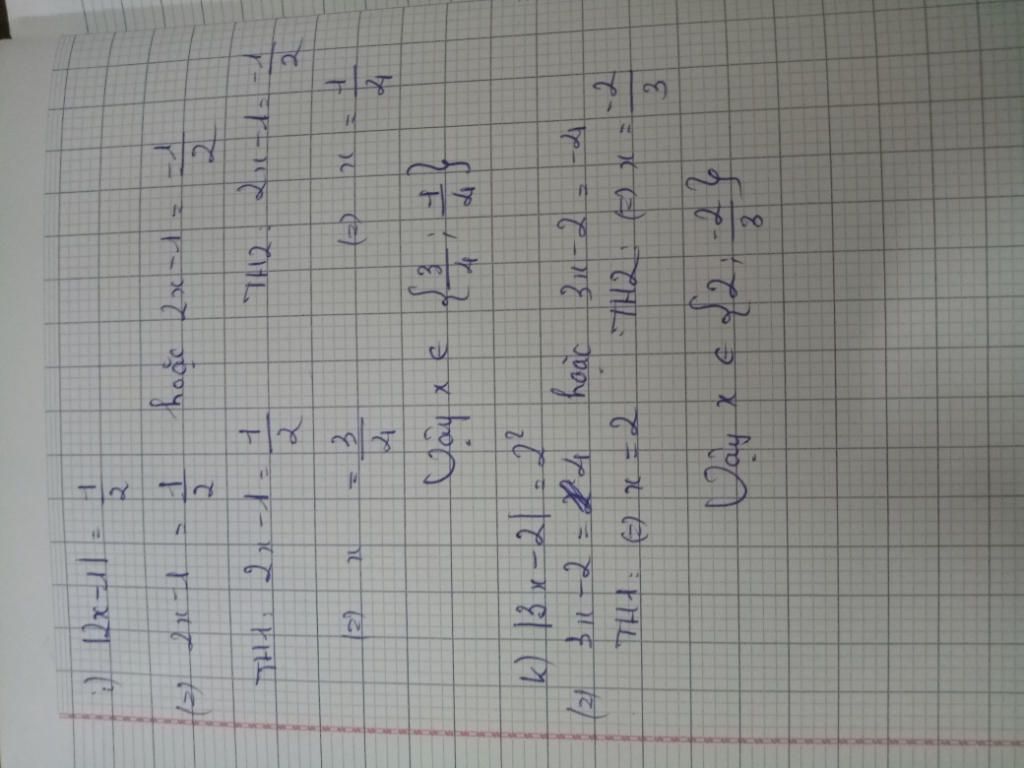 i) |2x-1| = 1/2
(=) 2x-1 = 1/2 hoặc 2x-1 = -1/2
TH1: 2x-1 = 1/2 TH2: 2x-1 = -1/2
(=) x = 3/4 (=) x = 1/4
Vậy x ∈ {3/4; 1/4}
k) |3x-2| = 2²
(=) 3x-2 = 4 hoặc 3x-2 = -4
TH1: (=) x = 2 TH2: (=) x = -2/3
Vậy x ∈ {2; -2/3}